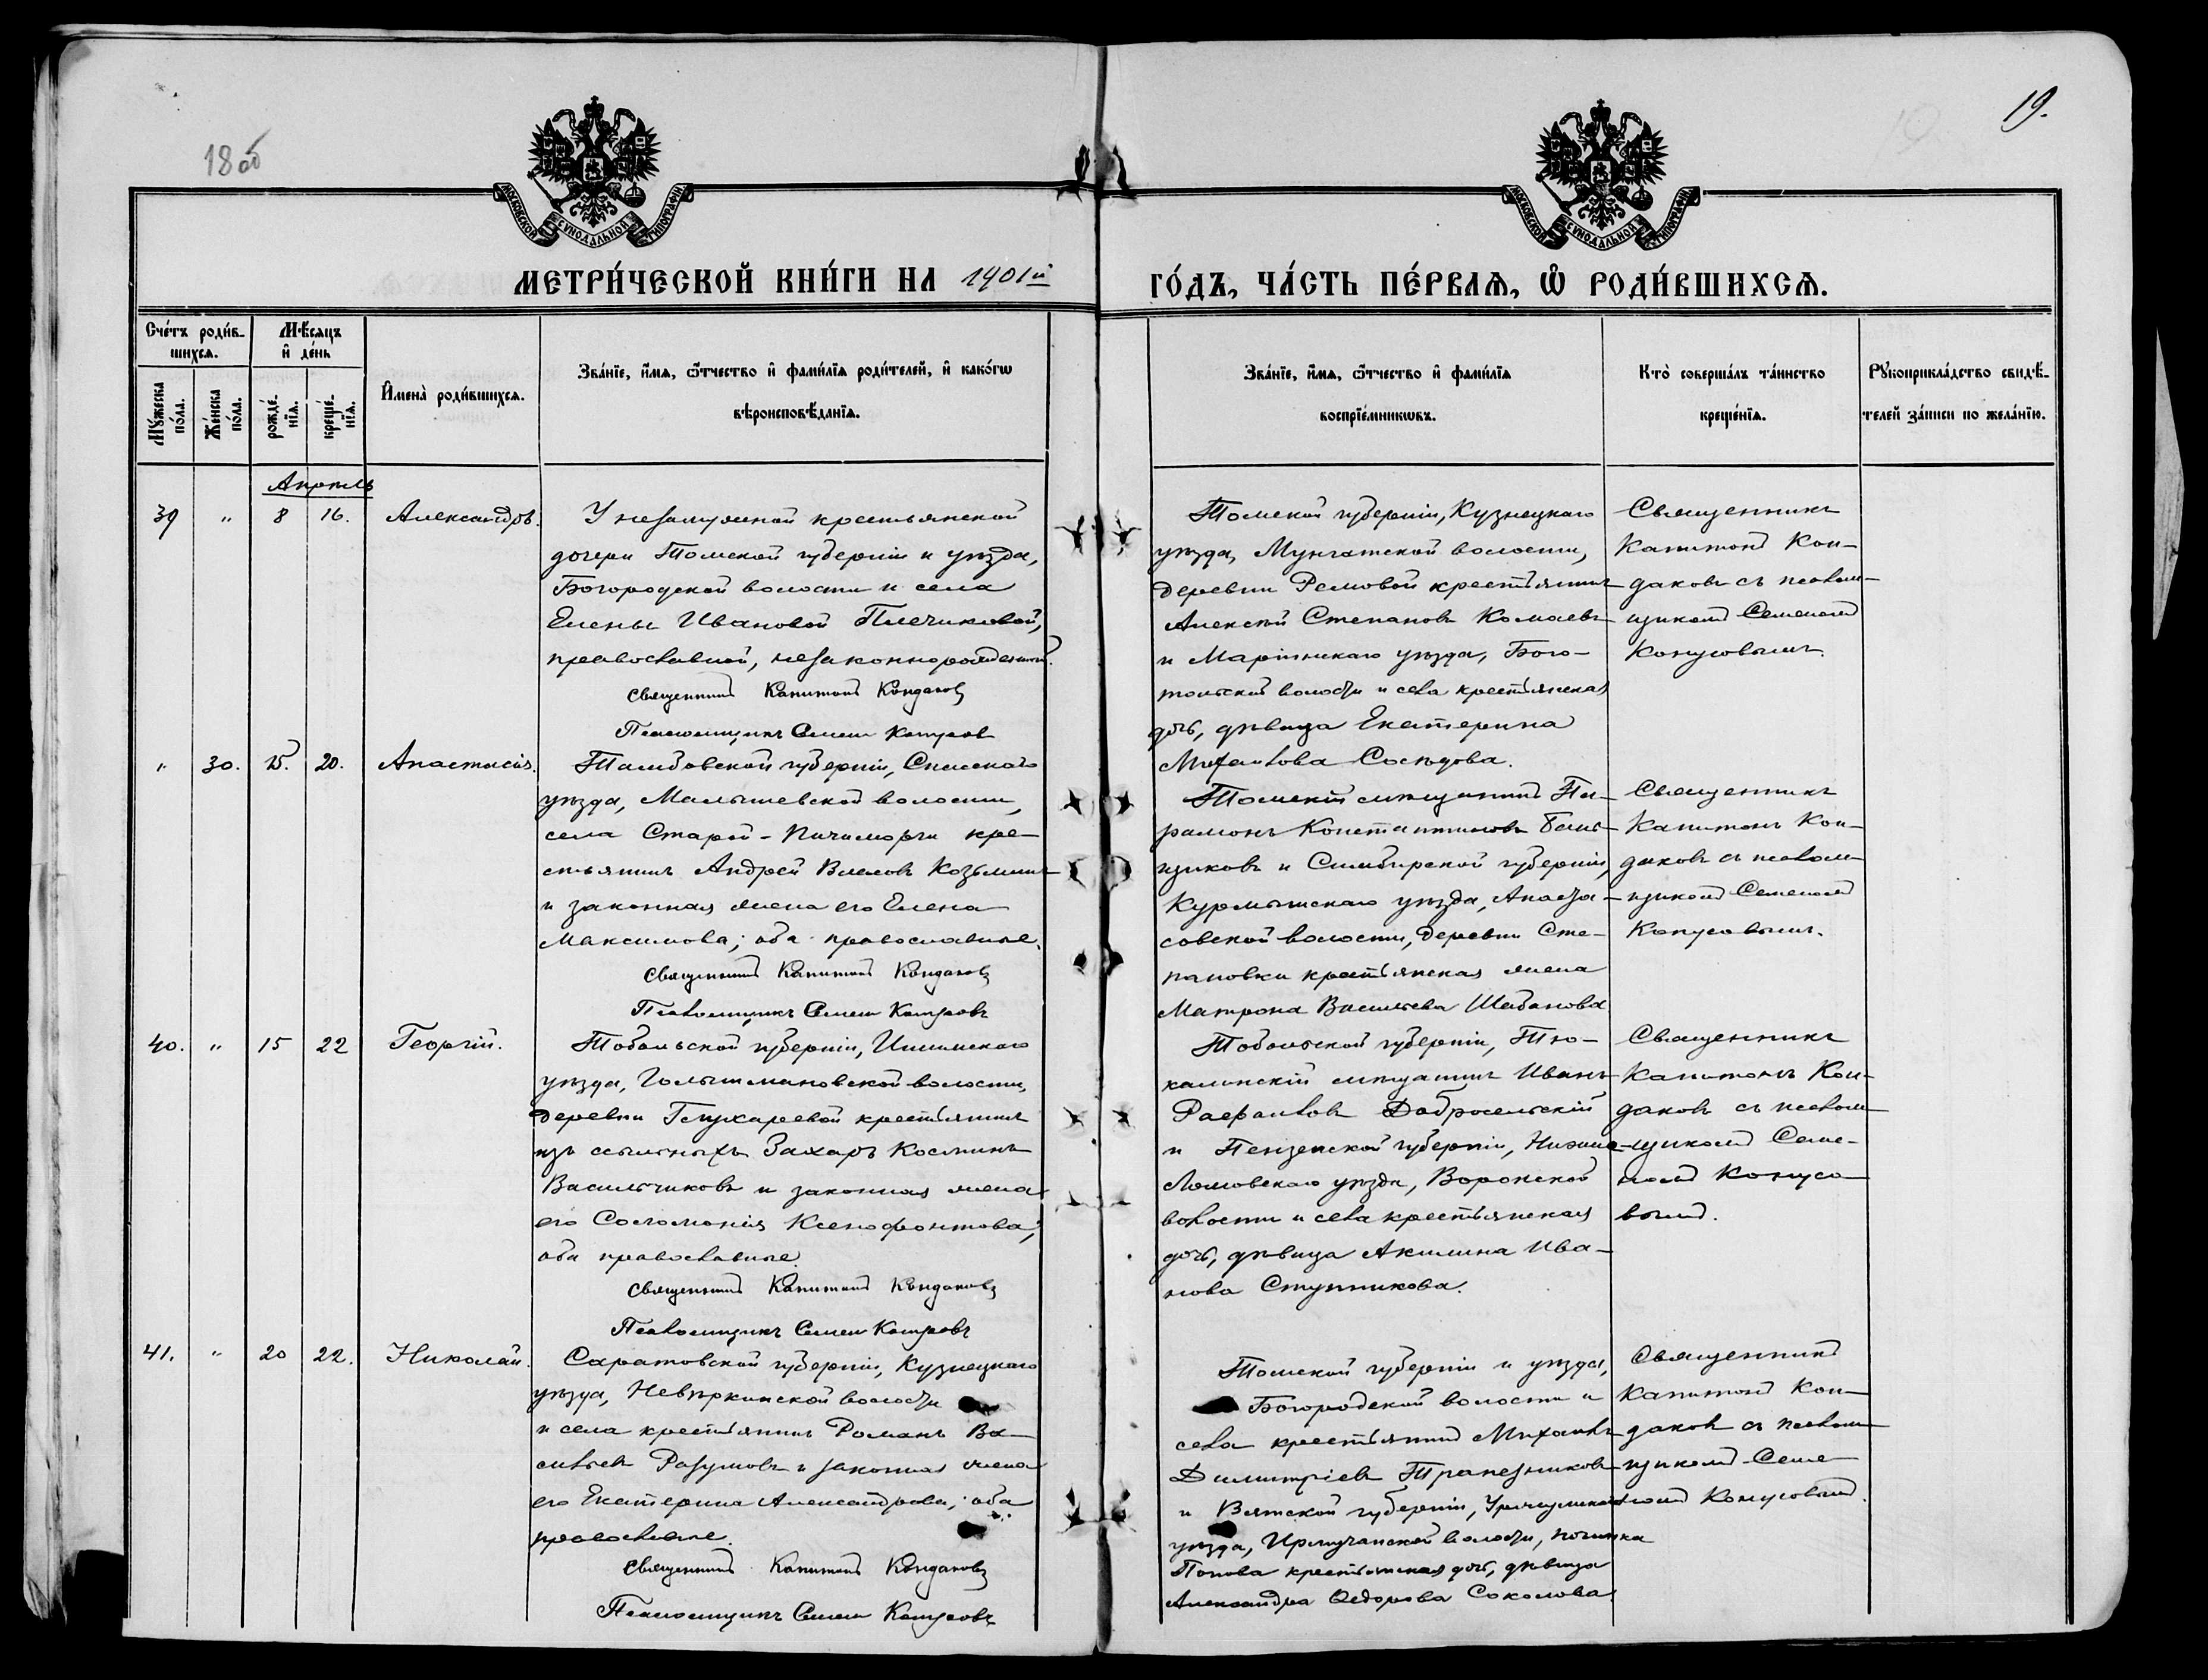 18 об
19.
МОСКОВСКОЙ СУНОДАЛЬНОЙ ТИПОГРАФІИ
МОСКОВСКОЙ СУНОДАЛЬНОЙ ТИПОГРАФІИ
МЕТРИ́ЧЕСКОЙ КНИ́ГИ НА 1901й
ГО́ДЪ, ЧА́СТЬ ПЕ́РВАѦ, Ѽ РОДИ́ВШИХСѦ.
Сче́тъ роди́в-
шихсѧ.
Мꙋ́жеска по́ла.
Же́нска по́ла.
Мѣ́сѧцъ
и҆ де́нь
рожде́-
нїѧ.
креще́-
нїѧ.
И҆мена̀ роди́вшихсѧ.
Зва́нїе, и҆́мѧ, ѻ҆́тчество и҆ фами́лїѧ роди́телей, и҆ како́гѡ
вѣроисповѣ́данїѧ.
Зва́нїе, и҆́мѧ, ѻ҆́тчество и҆ фами́лїѧ
воспрїе́мникѡвъ.
Кто̀ соверша́лъ та́инство
креще́нїѧ.
Рꙋкоприкла́дство свидѣ́-
телей за́писи по жела́нїю.
Апрѣль
39 " 8 16. Александръ.
У незамужней крестьянской
дочери Томской губерніи и уѣзда,
Богородской волости и села
Елены Ивановой Плечиковой,
православной, незаконнорожденный.
Священникъ Капитонъ Кондаковъ
Псаломщикъ Семен Конусовъ
Томской губерніи, Кузнецкаго
уѣзда, Мунгатской волости,
деревни Ремовой крестьянинъ
Алексѣй Степановъ Комаевъ
и Маріинскаго уѣзда, Бого-
тольской волости и села крестьянская
дочь, дѣвица Екатерина
Михаилова Сосѣдова.
Священникъ
Капитонъ Кон-
даковъ съ псалом-
щикомъ Семеномъ
Конусовымъ.
" 30. 15. 20. Анастасія.
Тамбовской губерніи, Спасскаго
уѣзда, Малышевской волости,
села Старой-Пичиморги кре-
стьянинъ Андрей Власовъ Козьминъ
и законная жена его Елена
Максимова; оба православные.
Священникъ Капитонъ Кондаковъ
Псаломщикъ Семен Конусовъ
Томскій мѣщанинъ Па-
рамонъ Константиновъ Баль-
щиковъ и Симбирской губерніи,
Курмышскаго уѣзда, Анаста-
совской волости, деревни Сте-
пановки крестьянская жена
Матрона Васильева Шабанова
Священникъ
Капитонъ Кон-
даковъ съ псалом-
щикомъ Семеномъ
Конусовымъ.
40. " 15 22 Георгій.
Тобольской губерніи, Ишимскаго
уѣзда, Голышмановской волости,
деревни Глухаревой крестьянинъ
изъ ссыльныхъ Захаръ Косминъ
Васильчиковъ и законная жена
его Соломонія Ксенофонтова;
оба православные.
Священникъ Капитонъ Кондаковъ
Псаломщикъ Семен Конусовъ
Тобольской губерніи, Тю-
калинскій мѣщанинъ Иванъ
Рафаиловъ Добросельскій
и Пензенской губерніи, Нижне-
Ломовскаго уѣзда, Воронской
волости и села крестьянская
дочь, дѣвица Акилина Ива-
нова Ступникова.
Священникъ
Капитонъ Кон-
даковъ съ псалом-
щикомъ Семе-
номъ Конусо-
вымъ.
41. " 20 22. Николай.
Саратовской губерніи, Кузнецкаго
уѣзда, Невѣркинской волости
и села крестьянинъ Романъ Ва-
сильевъ Разумовъ и законная жена
его Екатерина Александрова; оба
православные.
Священникъ Капитонъ Кондаковъ
Псаломщикъ Семен Конусовъ
Томской губерніи и уѣзда,
Богородской волости и
села крестьянинъ Михаилъ
Димитріевъ Трапезниковъ
и Вятской губерніи, Уржумскаго
уѣзда, Ирмучанской волости, починка
Попова крестьянская дочь, дѣвица
Александра Ѳедорова Соколова.
Священникъ
Капитонъ Кон-
даковъ съ псалом-
щикомъ Семе-
номъ Конусовымъ.